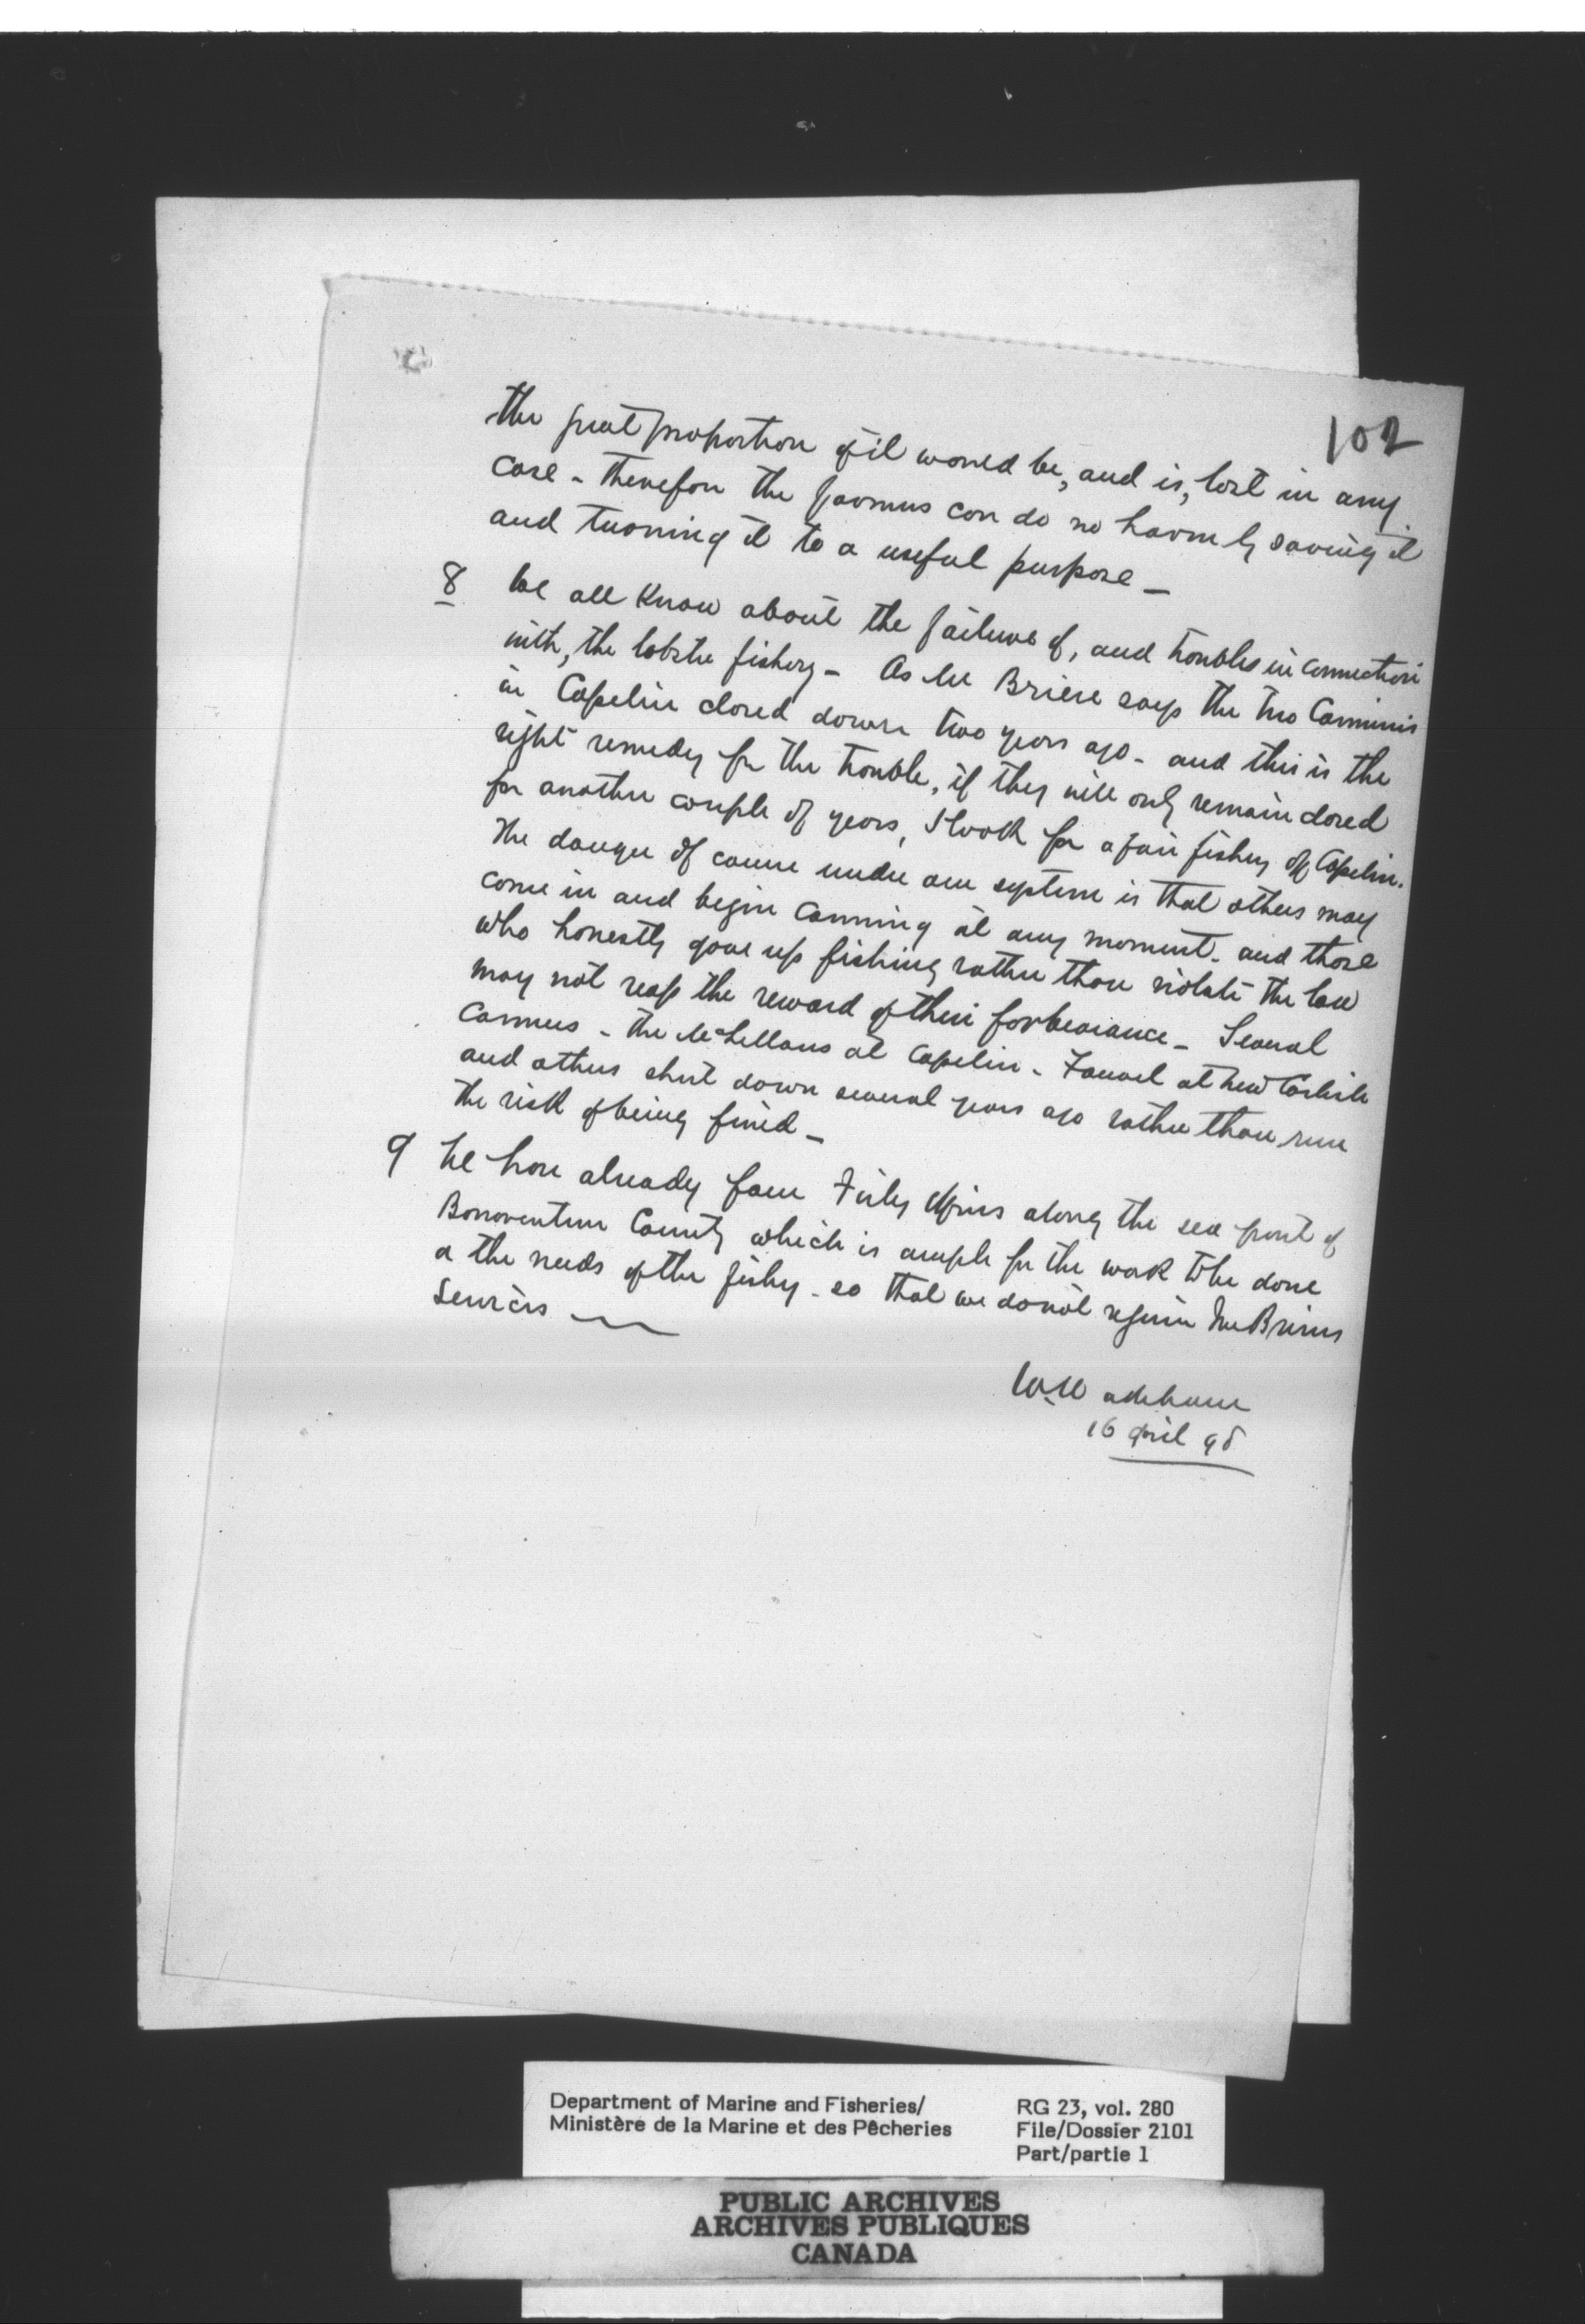 102
the great proportion of it would be, and is, lost in any
case - therefore the farmers can do no harm by saving it
and turning it to a useful purpose -
8 We all know about the failure of, and troubles in connection
with, the lobster fishery - As Mr Briere says the two Canneries
in Capelin closed down two years ago - and this is the
right remedy for the trouble, if they will only remain closed
for another couple of years, I look for a fair fishery off Capelin.
The danger of course under our system is that others may
come in and begin canning at any moment - and those
who honestly gave up fishing rather than violate the law
may not reap the reward of their forbearance - Several
Canners - the McLellans at Capelin - Fauvel at New Carlisle
and others shut down several years ago rather than run
the risk of being fined -
9 We have already four Fishy Offrs along the sea front of
Bonaventure County which is ample for the work to be done
or the needs of the fishery - so that we do not require Mr Brieres
Services
Wakeham
16 April 98
Department of Marine and Fisheries/
Ministère de la Marine et des Pêcheries
RG 23, vol. 280
File/Dossier 2101
Part/partie 1
PUBLIC ARCHIVES
ARCHIVES PUBLIQUES
CANADA